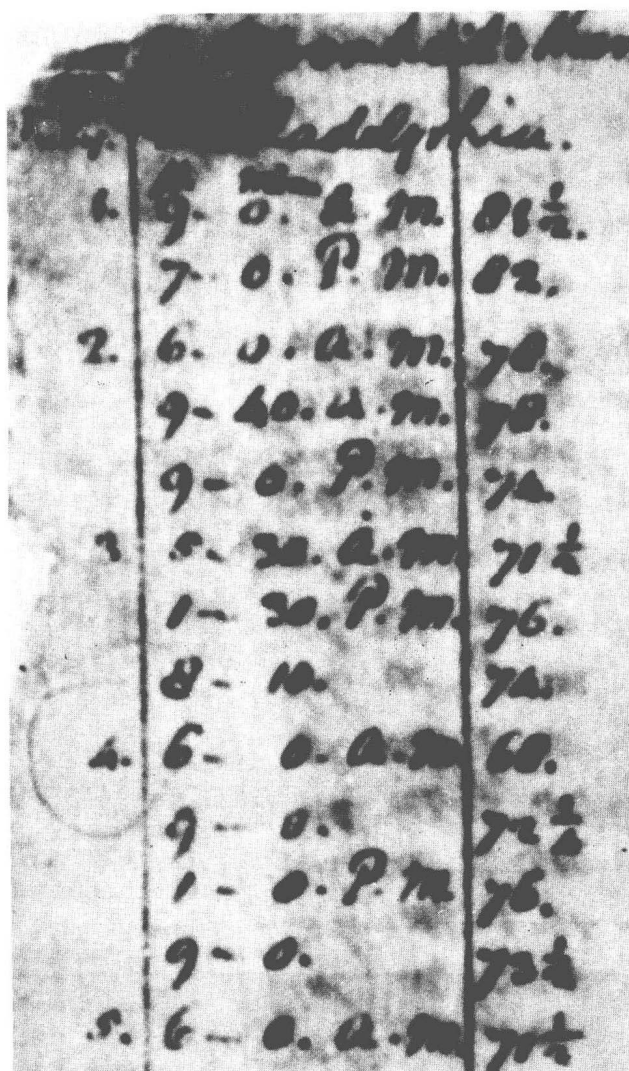 adelphia.
h min
1. 9- 0. A. M. 81 1/2.
7- 0. P. M. 82.
2. 6- 0. a. m. 78.
9- 40. a. m. 78.
9- 0. P. M. 74.
3. 5- 30. a. m. 71 1/2
1- 30. P. M. 76.
8- 10. 74.
4. 6- 0. a. m. 68.
9- 0. 72 1/4
1- 0. P. M. 76.
9- 0. 73 1/2
5. 6- 0. a. m. 71 1/2